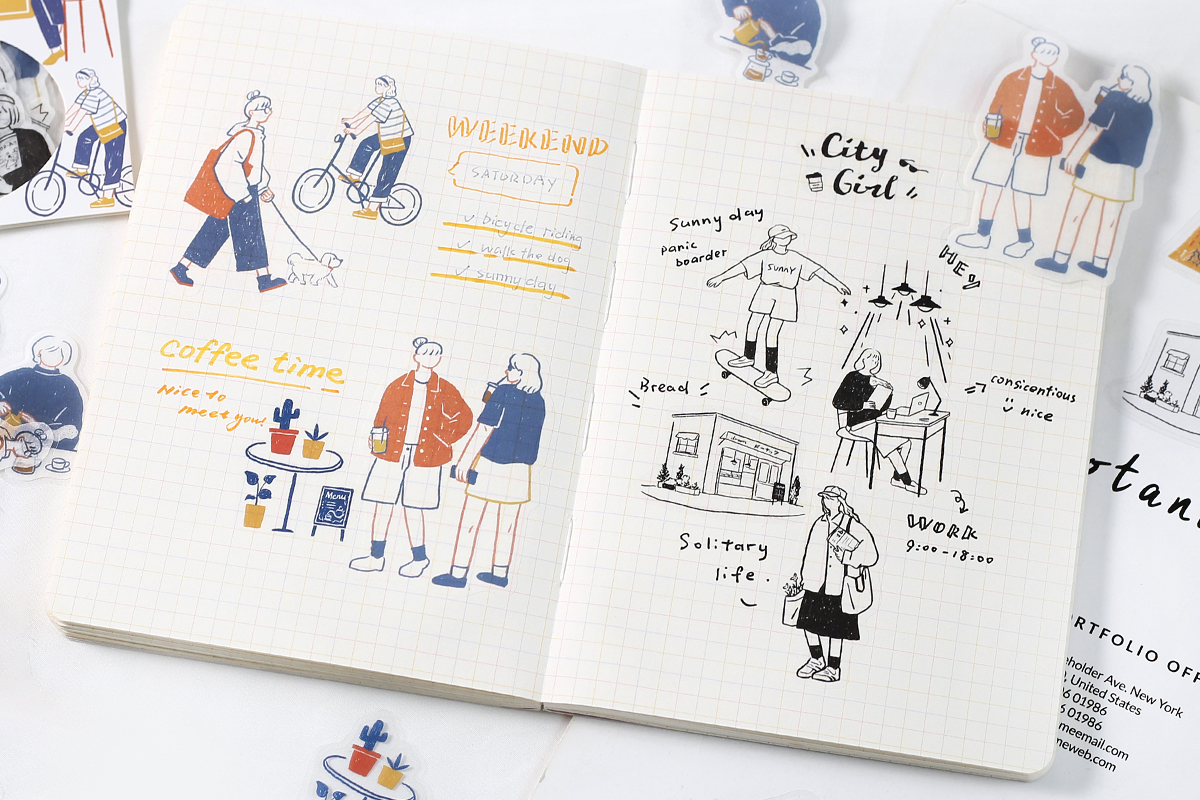 WEEKEND
SATURDAY
✓ bicycle riding
✓ walk the dog
✓ sunny day
coffee time
Nice to
meet you!
Menu
City
Girl
Sunny day
panic
boarder
SUNNY
Bread
consicentious
nice
WORK
9:00-18:00
Solitary
life.
ORTFOLIO OFF
eholder Ave. New York
, United States
6 01986
6 01986
meemail.com
neweb.com